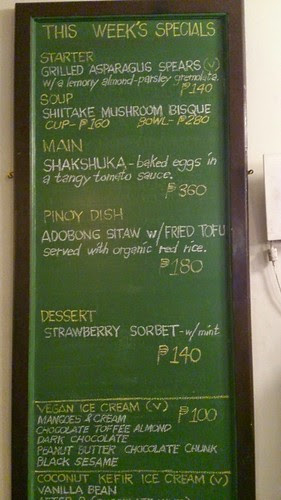 THIS WEEK'S SPECIALS
STARTER
GRILLED ASPARAGUS SPEARS (V)
w/a lemony almond-parsley gremolata.
₱140
SOUP
SHIITAKE MUSHROOM BISQUE
CUP- ₱160 BOWL- ₱280
MAIN
SHAKSHUKA - baked eggs in
a tangy tomato sauce.
₱360
PINOY DISH
ADOBONG SITAW w/FRIED TOFU
served with organic red rice.
₱180
DESSERT
STRAWBERRY SORBET - w/mint
₱140
VEGAN ICE CREAM (V) ₱100
MANGOES & CREAM
CHOCOLATE TOFFEE ALMOND
DARK CHOCOLATE
PEANUT BUTTER CHOCOLATE CHUNK
BLACK SESAME
COCONUT KEFIR ICE CREAM (V)
VANILLA BEAN
AFTER